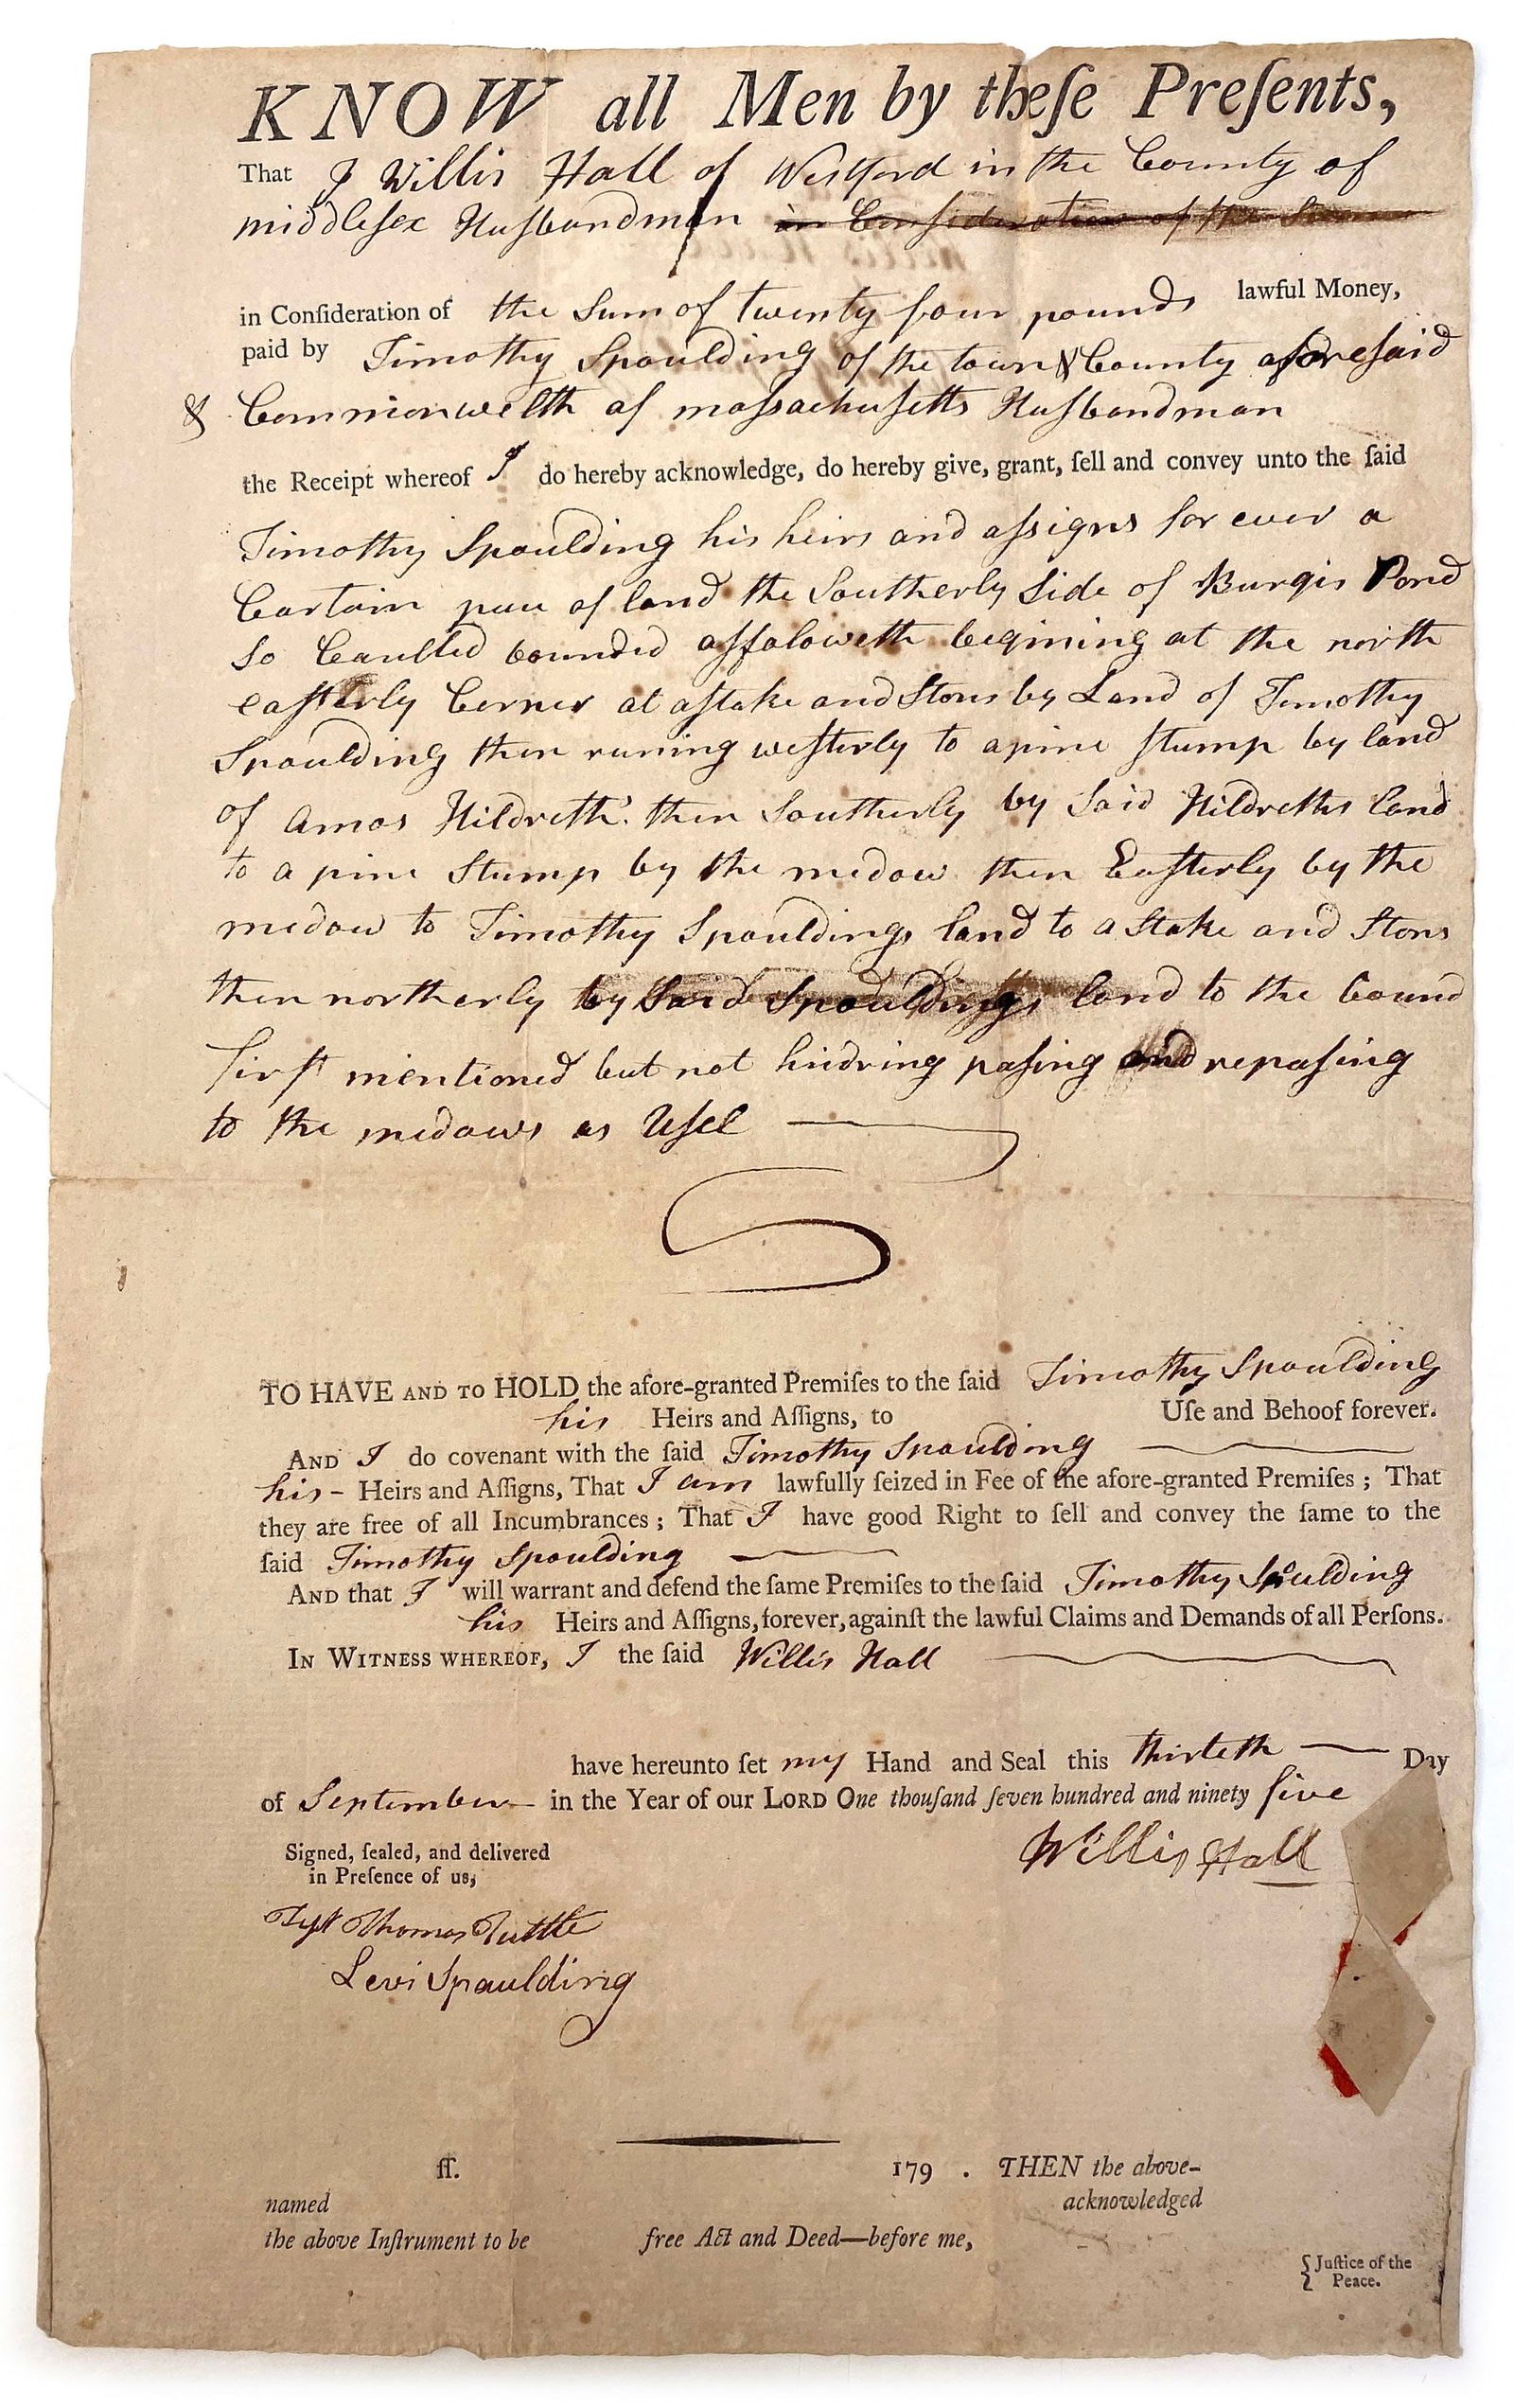 KNOW all Men by theſe Preſents,
That I Willis Hall of Westford in the County of
middleſex Huſbandman in Conſideration of the Sum
in Conſideration of the Sum of twenty four pounds lawful Money,
paid by Timothy Spaulding of the town & County aforeſaid
& Commonwelth of maſsachuſetts Huſbandman
the Receipt whereof I do hereby acknowledge, do hereby give, grant, ſell and convey unto the ſaid
Timothy Spaulding his heirs and aſsigns for ever a
Certain pece of land the Southerly Side of Burgis Pond
So Caulled bounded aſfaloweth begining at the north
eaſterly Corner at aſtake and Stons by Land of Timothy
Spaulding then runing weſterly to apine ſtump by land
of Amos Hildreth. then Southerly by Said Hildreths land
to a pine Stump by the medow then Eaſterly by the
medow to Timothy Spauldings land to a Stake and Stons
then northerly by Said Spauldings land to the bound
firſt mentioned but not hindring paſing and repaſing
to the medows as Uſel
TO HAVE AND TO HOLD the afore-granted Premiſes to the ſaid Timothy Spaulding
his Heirs and Aſſigns, to Uſe and Behoof forever.
AND I do covenant with the ſaid Timothy Spaulding
his - Heirs and Aſſigns, That I am lawfully ſeized in Fee of the afore-granted Premiſes ; That
they are free of all Incumbrances ; That I have good Right to ſell and convey the ſame to the
ſaid Timothy Spoulding
AND that I will warrant and defend the ſame Premiſes to the ſaid Timothy Spaulding
his Heirs and Aſſigns, forever, againſt the lawful Claims and Demands of all Perſons.
IN WITNESS WHEREOF, I the ſaid Willis Hall
have hereunto ſet my Hand and Seal this thirteth Day
of September in the Year of our LORD One thouſand ſeven hundred and ninety five
Willis Hall
Signed, ſealed, and delivered
in Preſence of us,
Teſt Thomas Tuttle
Levi Spaulding
ſſ. 179 . THEN the above-
named acknowledged
the above Inſtrument to be free Act and Deed—before me,
{ Juſtice of the
Peace.